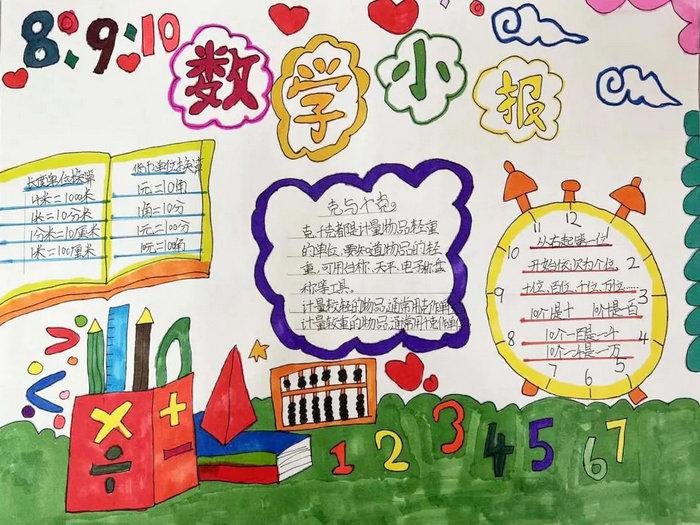 8 9 10
数学小报
长度单位换算
1千米=1000米
1米=10分米
1分米=10厘米
1米=100厘米
货币单位换算
1元=10角
1角=10分
1元=100分
10元=100角
克与千克。
克、千克都是计量物品轻重
的单位,要知道物品的轻
重,可用台称、天平、电子称、盘
称等工具。
计量较轻的物品,通常用克作单位
计量较重的物品,通常用千克作单位
11 12
10
9
8
7 6 5
4
3
2
从右起第一位
开始依次为个位、
十位、百位、千位、万位……
10个一是十 10个十是一百
10个一百是一千
10个一千是一万
< >
× + ÷ −
1 2 3 4 5 6 7